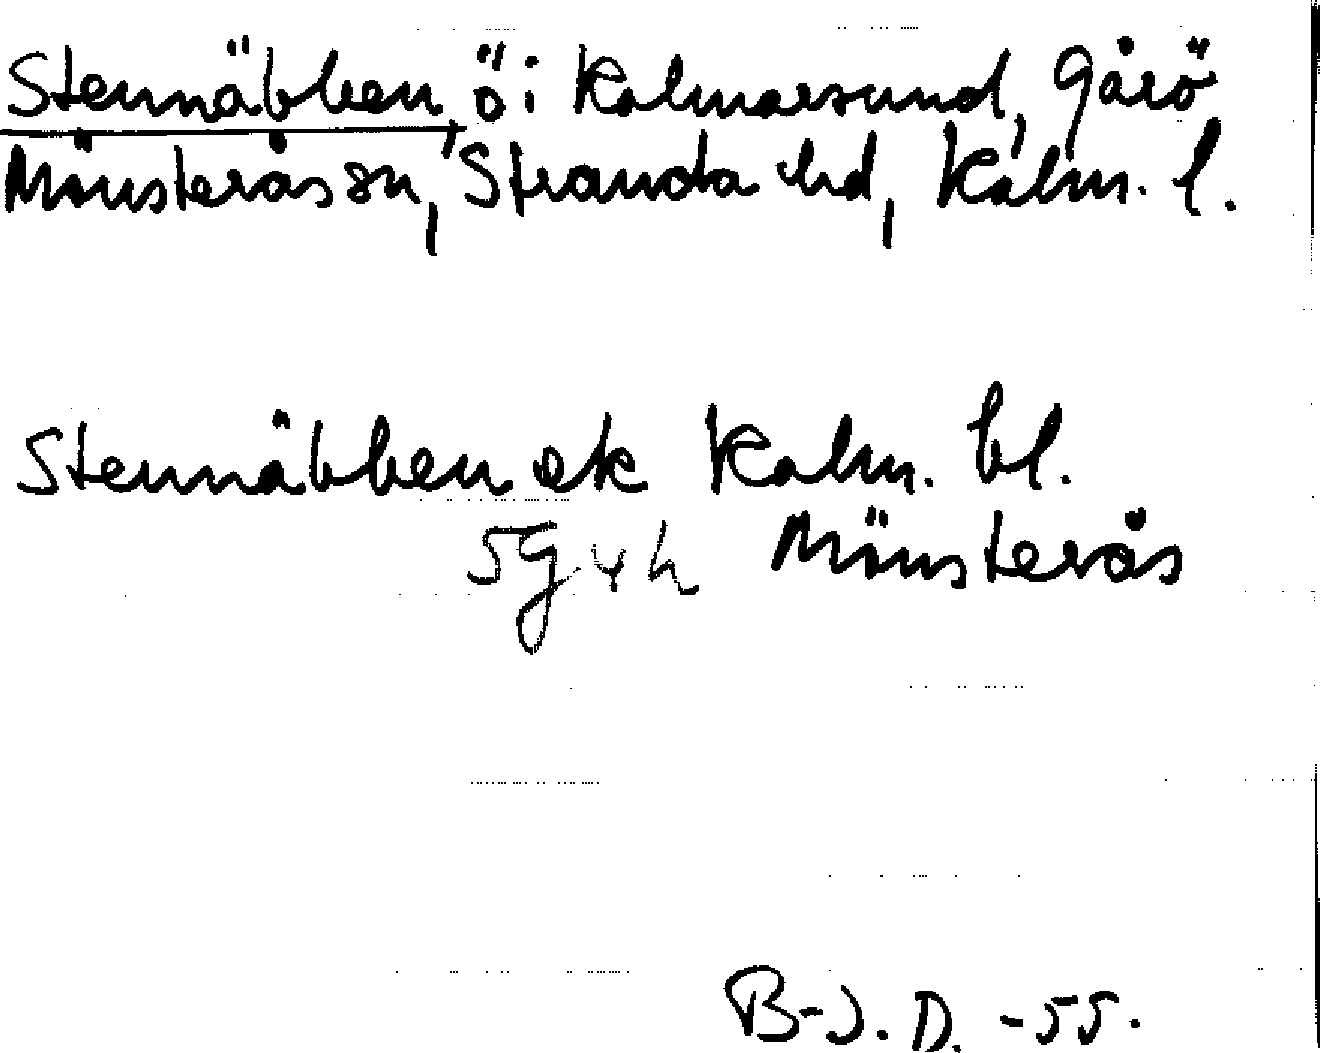 Stennäbben, ö i Kalmarsund, Gårö
Mönsterås sn, Stranda hd, Kalm. l.
Stennäbben ek Kalm. bl.
5g 4h Mönsterås
B-J. D. -55.